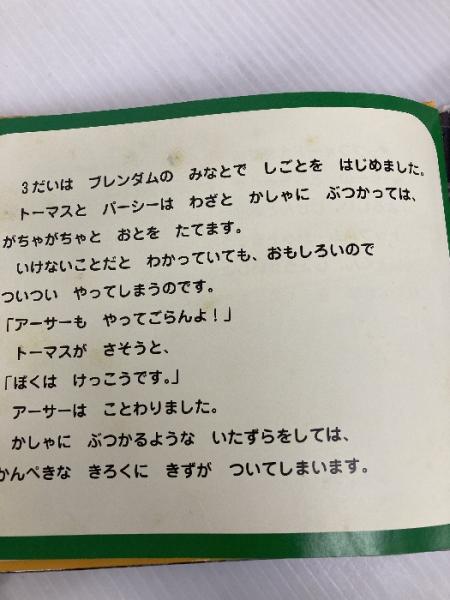 3だいは　ブレンダムの　みなとで　しごとを　はじめました。
トーマスと　パーシーは　わざと　かしゃに　ぶつかっては、
がちゃがちゃと　おとを　たてます。
いけないことだと　わかっていても、おもしろいので
ついつい　やってしまうのです。
「アーサーも　やってごらんよ！」
トーマスが　さそうと、
「ぼくは　けっこうです。」
アーサーは　ことわりました。
かしゃに　ぶつかるような　いたずらをしては、
かんぺきな　きろくに　きずが　ついてしまいます。